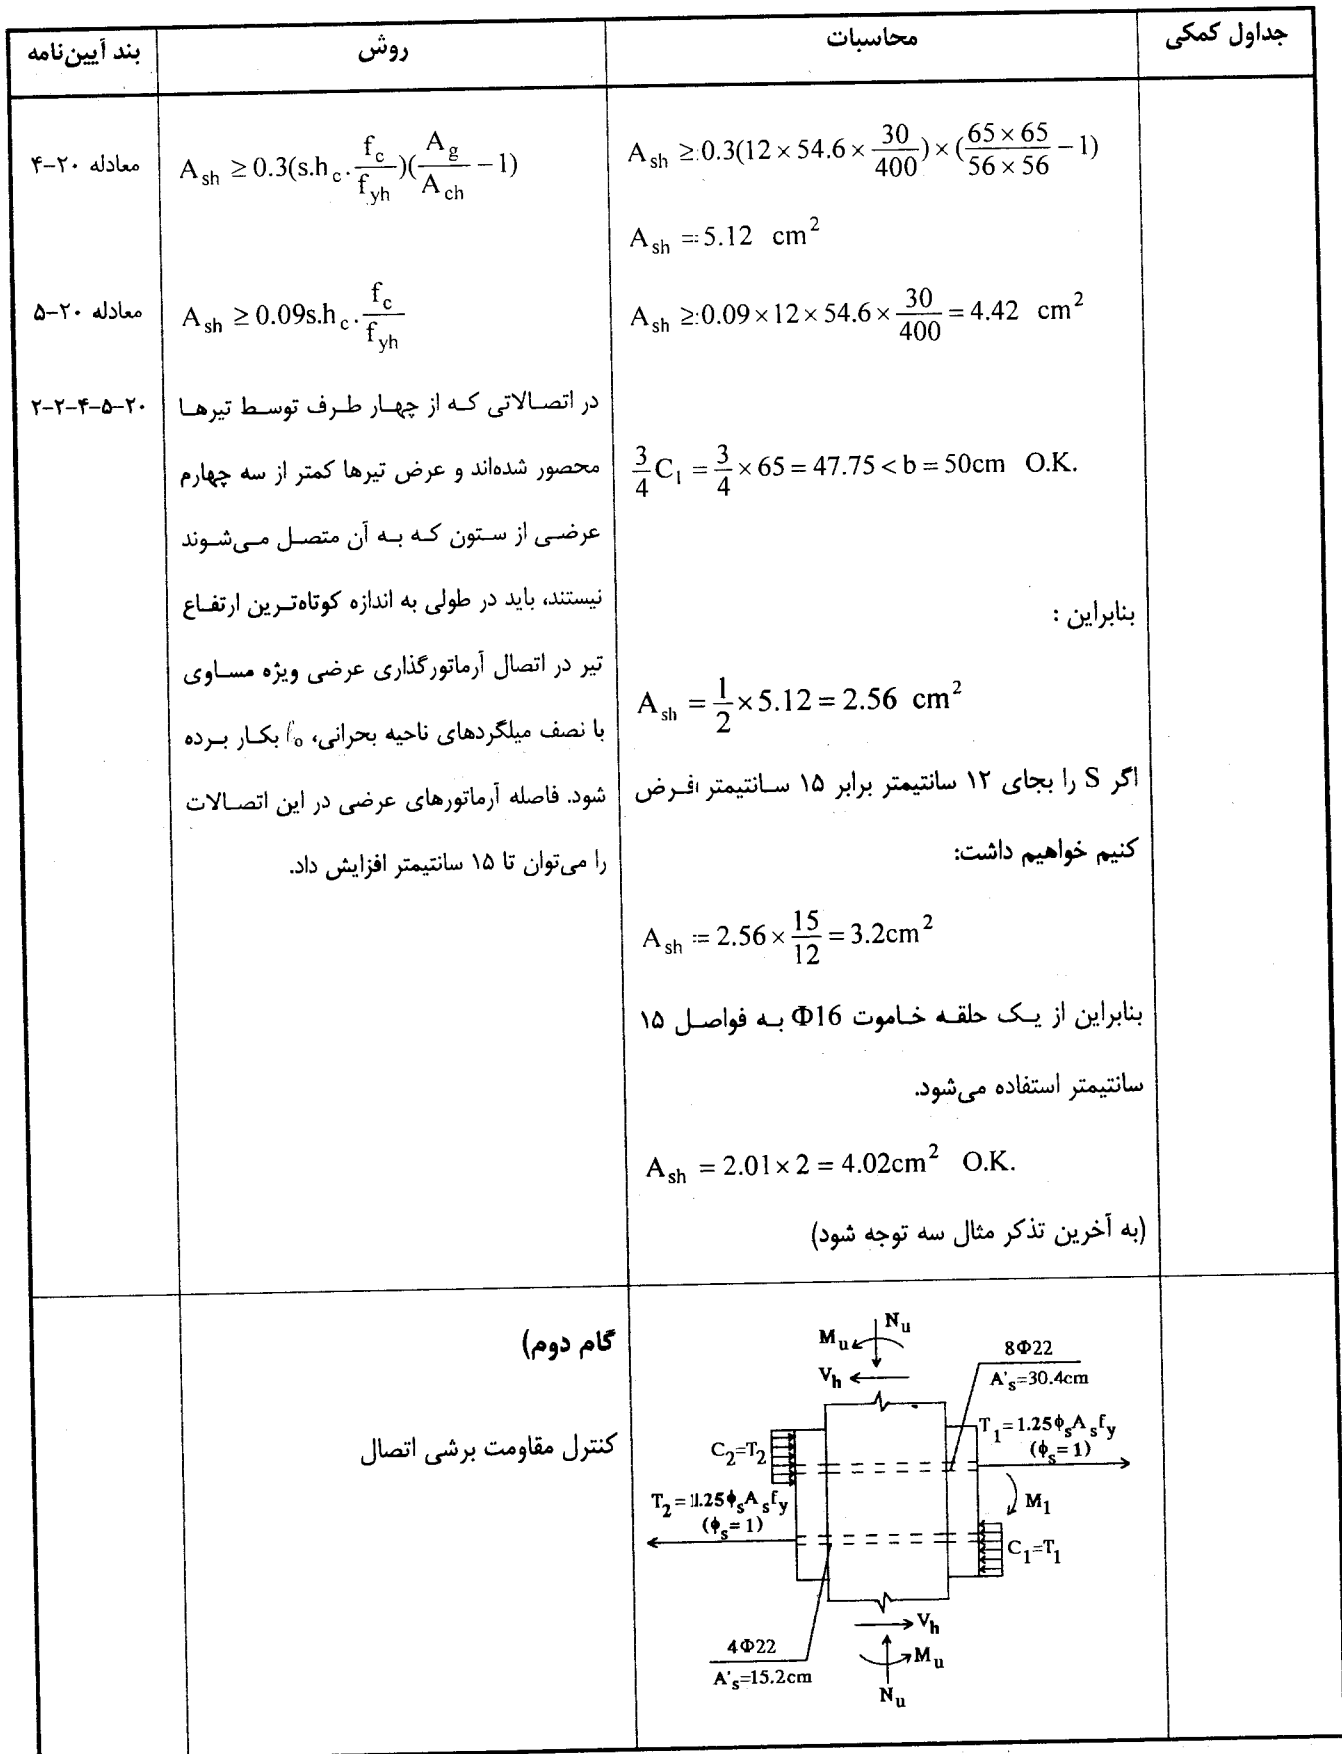 جداول کمکی
محاسبات
روش
بند آیین‌نامه
معادله ۲۰-۴
A_sh ≥ 0.3(s.h_c . f_c/f_yh)(A_g/A_ch − 1)
A_sh ≥ 0.3(12 × 54.6 × 30/400) × (65 × 65/56 × 56 − 1)
A_sh = 5.12 cm²
معادله ۲۰-۵
A_sh ≥ 0.09s.h_c . f_c/f_yh
A_sh ≥ 0.09 × 12 × 54.6 × 30/400 = 4.42 cm²
۲۰-۵-۴-۲-۲
در اتصالاتی که از چهار طرف توسط تیرها
محصور شده‌اند و عرض تیرها کمتر از سه چهارم
عرضی از ستون که به آن متصل می‌شوند
نیستند، باید در طولی به اندازه کوتاه‌ترین ارتفاع
تیر در اتصال آرماتورگذاری عرضی ویژه مساوی
با نصف میلگردهای ناحیه بحرانی، ℓ₀ بکار برده
شود. فاصله آرماتورهای عرضی در این اتصالات
را می‌توان تا ۱۵ سانتیمتر افزایش داد.
3/4 C₁ = 3/4 × 65 = 47.75 < b = 50cm O.K.
بنابراین :
A_sh = 1/2 × 5.12 = 2.56 cm²
اگر S را بجای ۱۲ سانتیمتر برابر ۱۵ سانتیمتر فرض
کنیم خواهیم داشت:
A_sh = 2.56 × 15/12 = 3.2cm²
بنابراین از یک حلقه خاموت Φ16 به فواصل ۱۵
سانتیمتر استفاده می‌شود.
A_sh = 2.01 × 2 = 4.02cm² O.K.
(به آخرین تذکر مثال سه توجه شود)
گام دوم)
کنترل مقاومت برشی اتصال
N_u
M_u
V_h
8Φ22
A'_s=30.4cm
T_1=1.25ϕ_sA_sf_y
(ϕ_s=1)
C_2=T_2
M_1
T_2=1.25ϕ_sA_sf_y
(ϕ_s=1)
C_1=T_1
V_h
4Φ22
A'_s=15.2cm
M_u
N_u